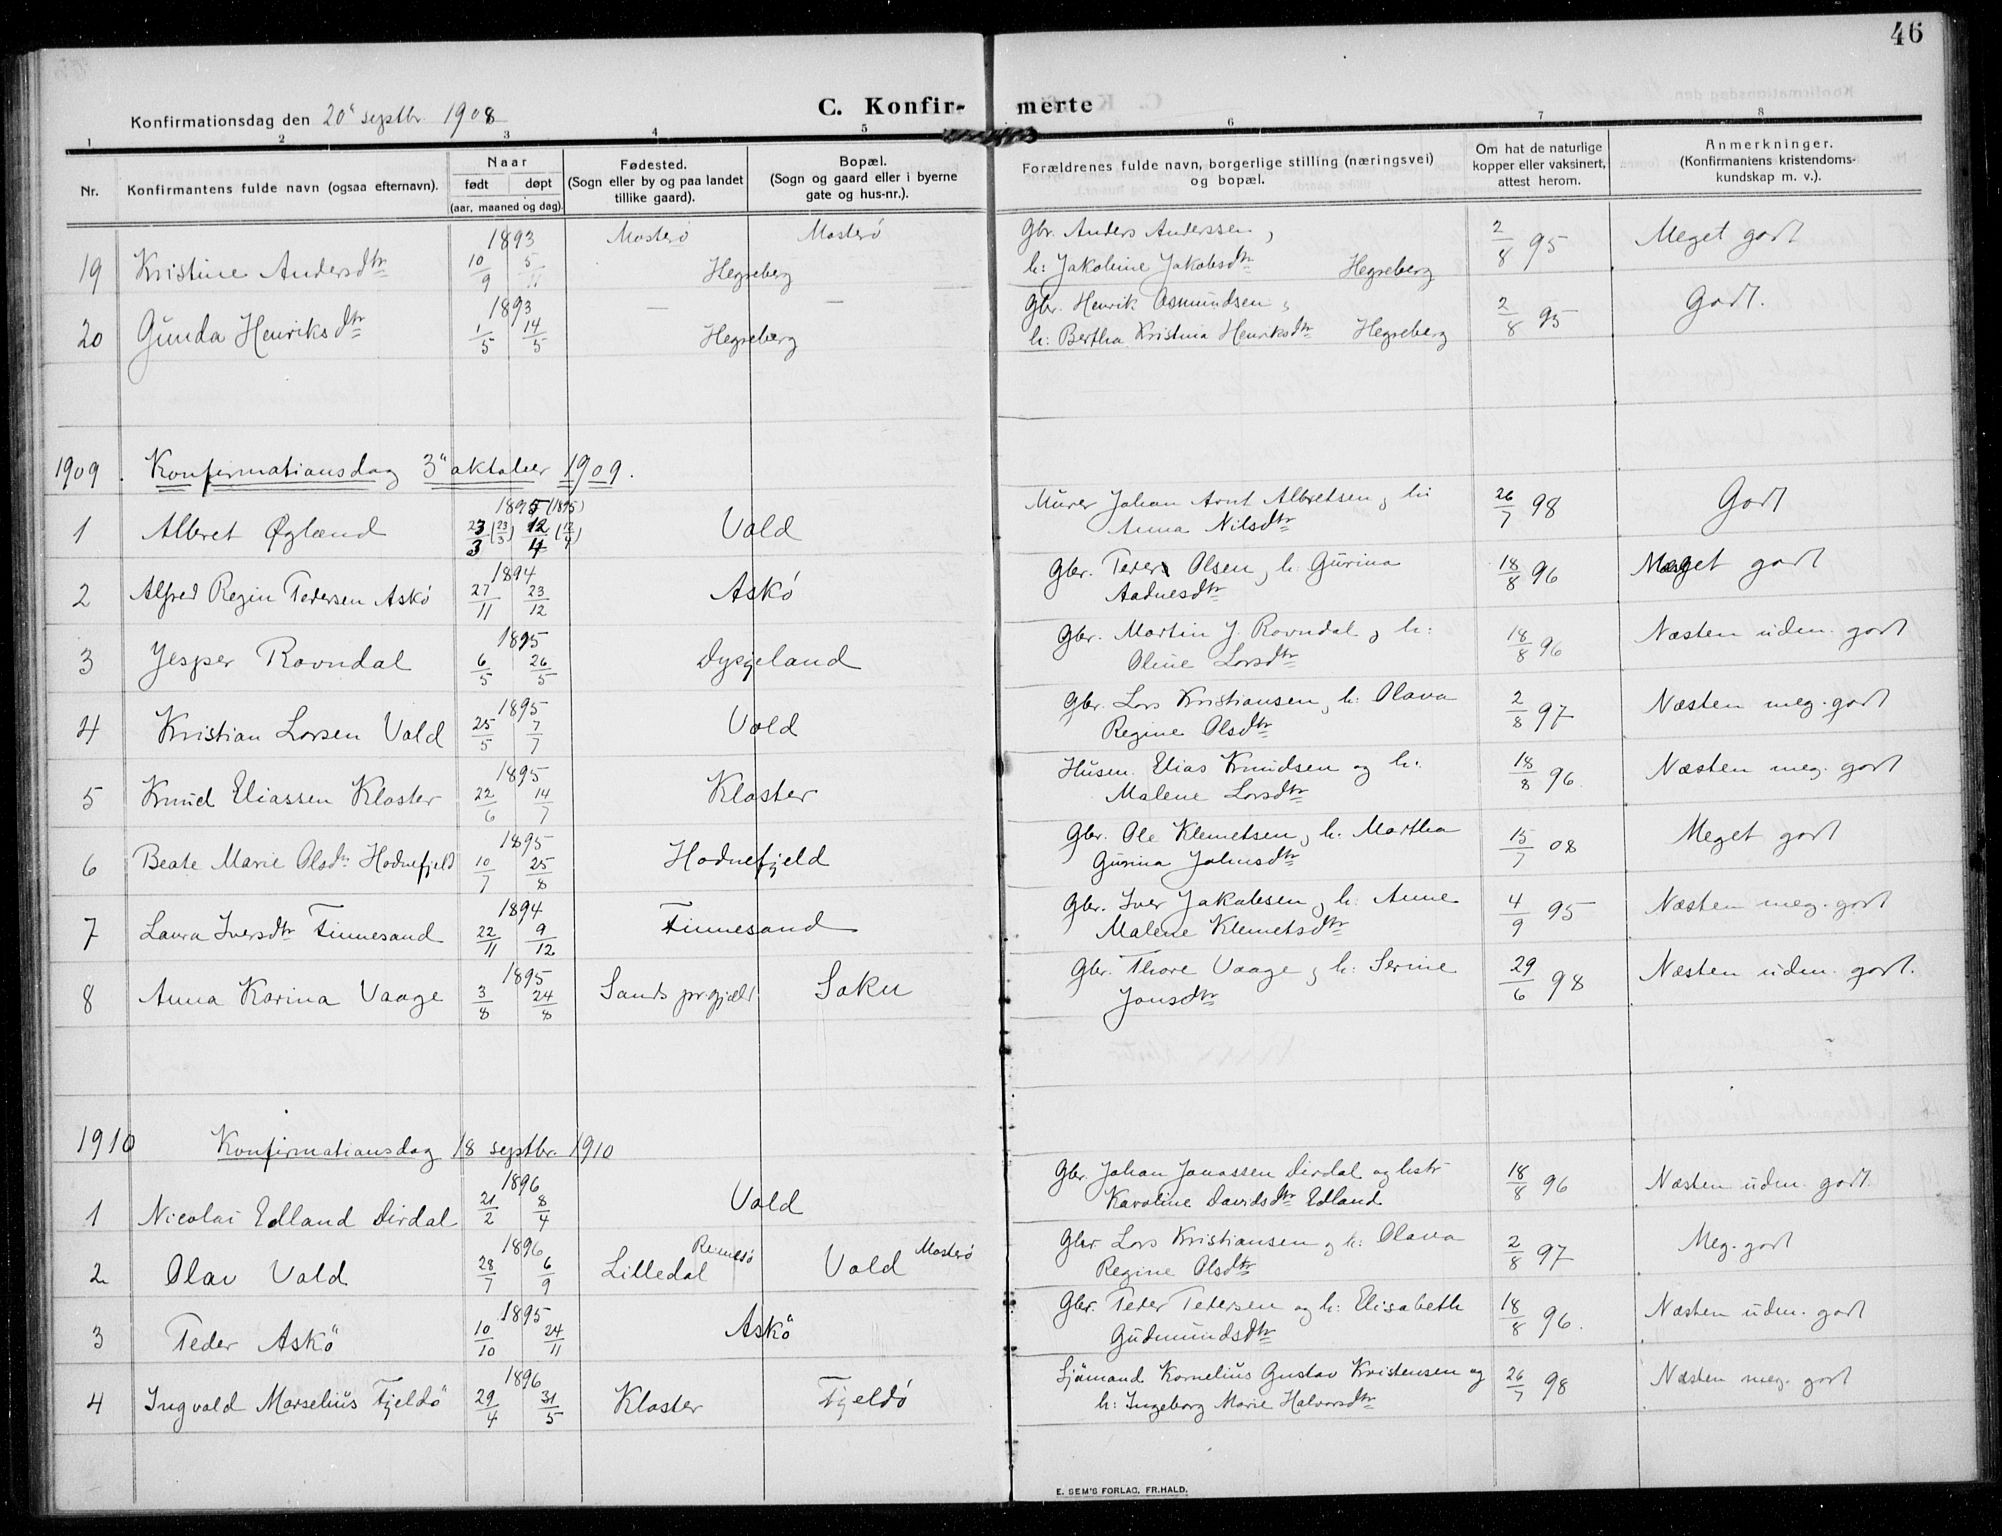 46
Konfirmationsdag den 20' septbr. 1908
C. Konfir- merte
1 2 3 4 5 6 7 8
Nr.
Konfirmantens fulde navn (ogsaa efternavn).
Naar
født døpt
(aar, maaned og dag).
Fødested.
(Sogn eller by og paa landet
tillike gaard).
Bopæl.
(Sogn og gaard eller i byerne
gate og hus-nr.).
Forældrenes fulde navn, borgerlige stilling (næringsvei)
og bopæl.
Om hat de naturlige
kopper eller vaksinert,
attest herom.
Anmerkninger.
(Konfirmantens kristendoms-
kundskap m. v.).
1893 Mosterö Mosterö Gbr. Anders Anderssen,
19 Kristine Andersdtr 10/9 5/11 Hegreberg h: Jakobine Jakobsdtr Hegreberg 2/8 95 Meget godt
1893 — — Gbr. Henrik Asmundsen,
20 Gunda Henriksdtr 1/5 14/5 Hegreberg h: Bertha Kristina Henriksdtr Hegreberg 2/8 95 Godt.
1909. Konfirmationsdag 3" oktober 1909.
1895 (1895) Murer Johan Arnt Albretsen, h:
1 Albret Øglænd 23/3 (23/3) 12/4 (12/4) Vold Anna Nilsdtr 26/7 98 Godt
1894 Gbr. Peder Olsen, h. Gurina
2 Alfred Regin Pedersen Askö 27/11 23/12 Askö Aadnesdtr 18/8 96 Meget godt
1895 Gbr. Martin J. Rovndal, h:
3 Jesper Rovndal 6/5 26/5 Dysjeland Oline Larsdtr 18/8 96 Næsten udm. godt
1895 Gbr. Lars Kristiansen, h: Olava
4 Kristian Larsen Vold 25/5 7/7 Vold Regine Olsdtr 2/8 97 Næsten meg. godt
1895 Husm. Elias Knudsen og h:
5 Knud Eliassen Kloster 22/6 14/7 Kloster Malene Larsdtr 18/8 96. Næsten meg. godt
1895 Gbr. Ole Klemetsen, h. Martha
6 Beate Marie Olsdtr Hodnefjeld 10/7 25/8 Hodnefjeld Gurina Johnsdtr 15/7 08 Meget godt
1894 Gbr. Iver Jakobsen, h: Anne
7 Laura Iversdtr Finnesand 22/11 9/12 Finnesand Malene Klemetsdtr 4/9 95 Næsten meg. godt
1895 Gbr. Thore Vaage, h: Serine
8 Anna Karina Vaage 3/8 24/8 Sands prgjæld Soku Jonsdtr 29/6 98 Næsten udm. godt.
1910 Konfirmationsdag 18 septbr. 1910
1896 Gbr. Johan Jonassen Dirdal og hstr
1 Nicolai Edland Dirdal 21/2 8/4 Vold Karoline Davidsdtr Edland 18/8 96 Næsten udm. godt
1896 Rennesö Mosterö Gbr Lars Kristiansen, h: Olava
2 Olav Vold 28/7 6/9 Lilledal Vold Regine Olsdtr 2/8 97 Meg. godt
1895 Gbr. Peder Pedersen og h: Elisabeth
3 Peder Askö 10/10 24/11 Askö Gudmundsdtr 18/8 96. Næsten udm. godt
1896 Sjömand Kornelius Gustav Kristensen og
4 Ingvald Marselius Fjeldö 29/4 31/5 Kloster Fjeldö h: Ingeborg Marie Halvorsdtr 26/7 98 Næsten meg. godt
E. SEM'S FORLAG, FR.HALD.